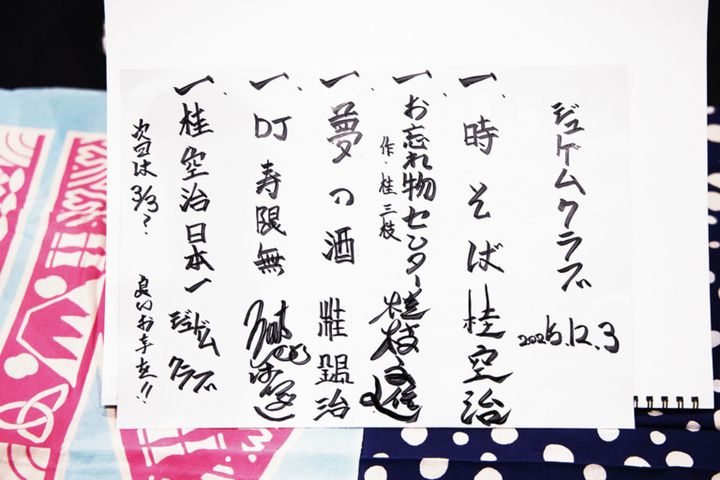 ジュゲムクラブ
2025.12.3
一、時そば 桂空治
一、お忘れ物センター
作・桂三枝
一、夢の酒
一、DJ寿限無
一、桂空治日本一 ジュゲムクラブ
次回は3/3? 良いお年を!!